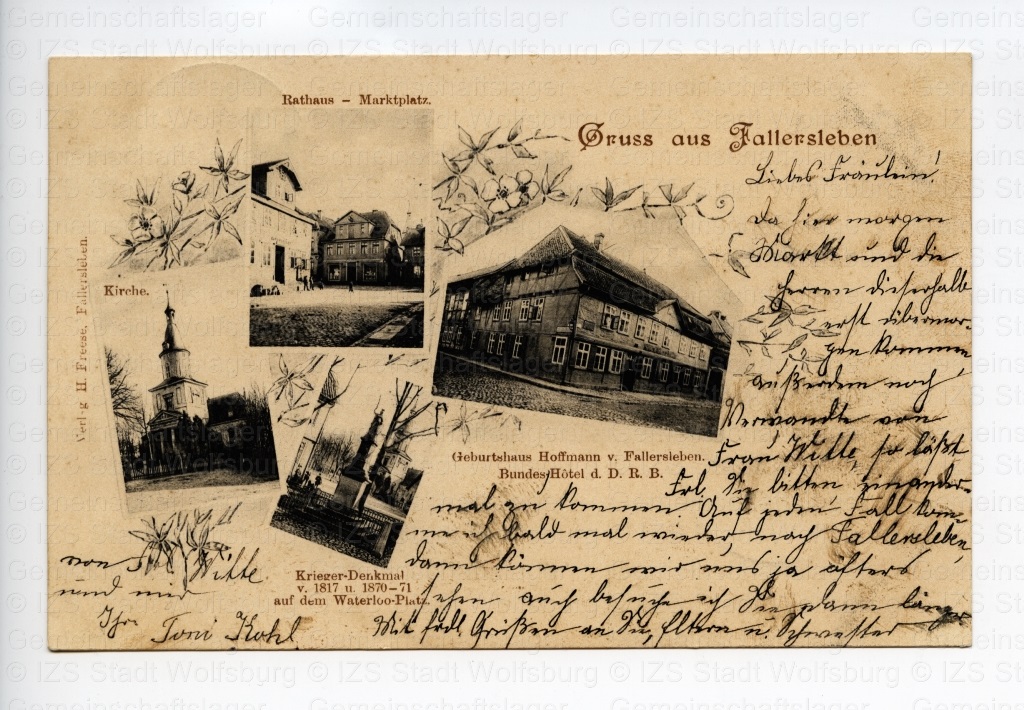 Rathaus – Marktplatz.
Gruss aus Fallersleben
Kirche.
Verlag H. Freese, Fallersleben.
Geburtshaus Hoffmann v. Fallersleben.
Bundes-Hôtel d. D. R. B.
Krieger-Denkmal
v. 1817 u. 1870–71
auf dem Waterloo-Platz.
Liebes Fräulein!
Da hier morgen
Markt und die
Herren dieserhalb
erst übermor-
gen kommen
außerdem noch
Verwandte von
Frau Witte, so läßt
Frl. Sie bitten
mal zu kommen Auf jeden Fall kom
me ich bald mal wieder nach Fallersleben,
dann können wir uns ja öfters
sehen auch besuche ich Sie dann länger
Mit frdl. Grüßen an Sie, Eltern u. Schwester
von Witte
und mir
Ihr Toni Kohl
Gemeinschaftslager
© IZS Stadt Wolfsburg